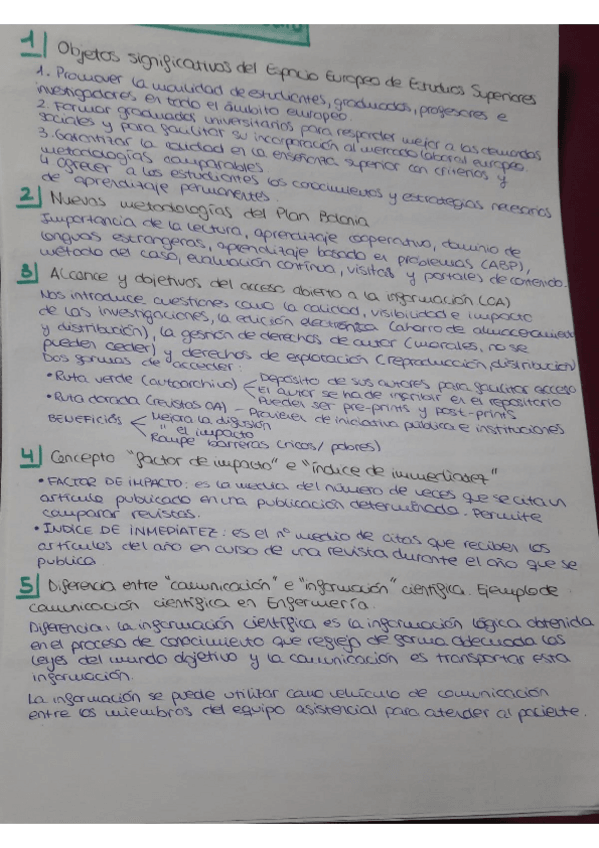 1| Objetos significativos del Espacio Europeo de Estudios Superiores
1. Promover la movilidad de estudiantes, graduados, profesores e
investigadores en todo el ámbito europeo.
2. Formar graduados universitarios para responder mejor a las demandas
sociales y para facilitar su incorporación al mercado laboral europeo.
3. Garantizar la calidad en la enseñanza superior con criterios y
metodologías comparables
4 ofrecer a los estudiantes los conocimientos y estrategias necesarios
de aprendizaje permanentes.
2| Nuevas metodologías del Plan Bolonia
Importancia de la lectura, aprendizaje cooperativo, dominio de
lenguas extrangeras, aprendizaje basado en problemas (ABP),
método del caso, evaluación contínua, visitas y portales de contenido.
3| Alcance y objetivos del acceso abierto a la información (OA)
Nos introduce cuestiones como la calidad, visibilidad e impacto
de las investigaciones, la edición electrónica (ahorro de almacenamiento
y distribución), la gestión de derechos de autor (morales, no se
pueden ceder) y derechos de explotación (reproducción, distribución)
Dos formas de acceder:
• Ruta verde (autoarchivo) < Depósito de sus autores para facilitar acceso
El autor se ha de inscribir en el repositorio
Pueden ser pre-prints y post-prints
• Ruta dorada (revistas OA) - Provienen de iniciativa pública e instituciones
BENEFICIOS < Mejora la difusión
" el impacto
Rompe barreras (ricos/pobres)
4| Concepto "factor de impacto" e "índice de inmediatez"
• FACTOR DE IMPACTO: es la media del número de veces que se cita un
artículo publicado en una publicación determinada. Permite
comparar revistas.
• ÍNDICE DE INMEDIATEZ: es el nº medio de citas que reciben los
artículos del año en curso de una revista durante el año que se
publica.
5| Diferencia entre "comunicación" e "información" científica. Ejemplo de
comunicación científica en Enfermería.
Diferencia: la información científica es la información lógica obtenida
en el proceso de conocimiento que refleja de forma adecuada las
leyes del mundo objetivo y la comunicación es transportar esta
información.
La información se puede utilizar como vehículo de comunicación
entre los miembros del equipo asistencial para atender al paciente.